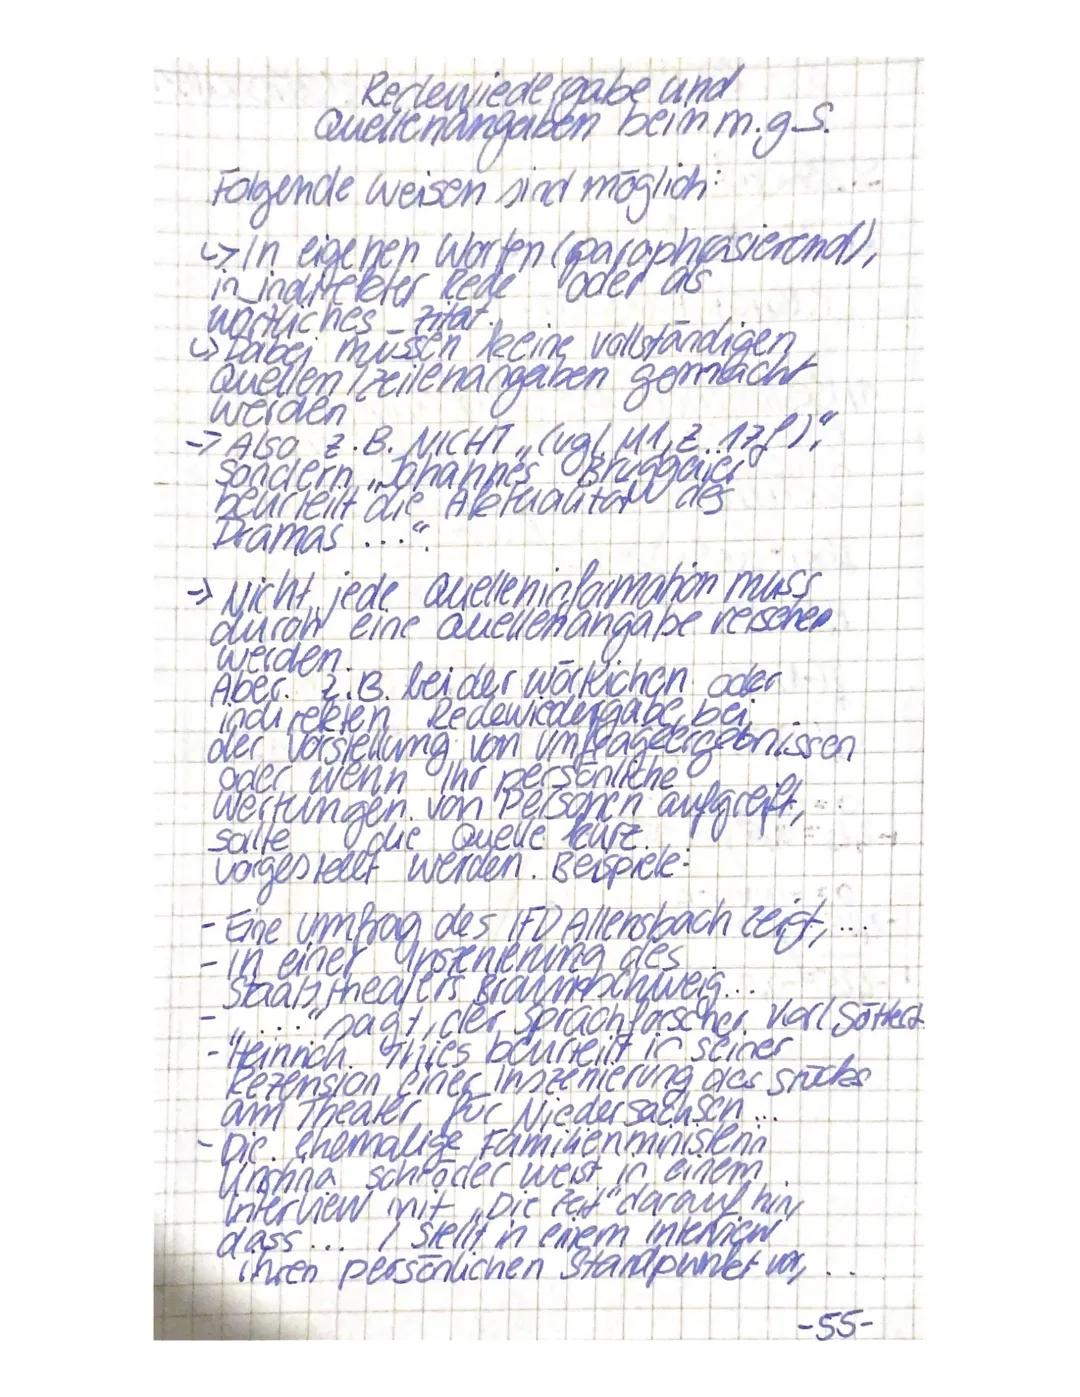 Redewiedergabe und
Quellenangaben beim m.g.S.
Folgende Weisen sind möglich:
↳ In eigenen Worten (paraphrasierend),
in indirekter Rede oder als
wörtliches Zitat.
↳ Dabei müssen keine vollständigen
Quellen/Zeilenangaben gemacht
werden
-> Also z.B. NICHT „(vgl. M1, Z. 17f)",
sondern „Johannes Bruggaier
beurteilt die Aktualität des
Dramas ...".
-> Nicht jede Quelleninformation muss
durch eine Quellenangabe versehen
werden.
Aber: z.B. bei der wörtlichen oder
indirekten Redewiedergabe, bei
der Vorstellung von Umfrageergebnissen
oder wenn ihr persönliche
Wertungen von Personen aufgreift,
sollte die Quelle kurz
vorgestellt werden. Beispiele:
- Eine Umfrag des IFD Allensbach zeigt, ...
- In einer Inszenierung des
Staatstheaters Braunschweig...
- "..." sagt der Sprachforscher Karl
- Heinrich Thies beurteilt in seiner
Rezension einer Inszenierung des Stücks
am Theater für Niedersachsen ...
- Die ehemalige Familienministerin
Kristina Schröder weist in einem
Interview mit „Die Zeit" darauf hin,
dass ... / stellt in einem Interview
ihren persönlichen Standpunkt vor, ...
-55-